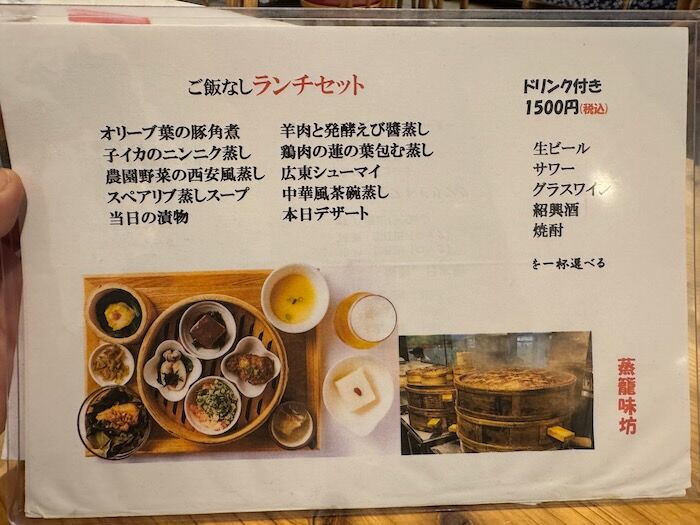 ご飯なしランチセット
オリーブ葉の豚角煮
子イカのニンニク蒸し
農園野菜の西安風蒸し
スペアリブ蒸しスープ
当日の漬物
羊肉と発酵えび醬蒸し
鶏肉の蓮の葉包む蒸し
広東シューマイ
中華風茶碗蒸し
本日デザート
ドリンク付き
1500円(税込)
生ビール
サワー
グラスワイン
紹興酒
焼酎
を一杯選べる
蒸籠味坊